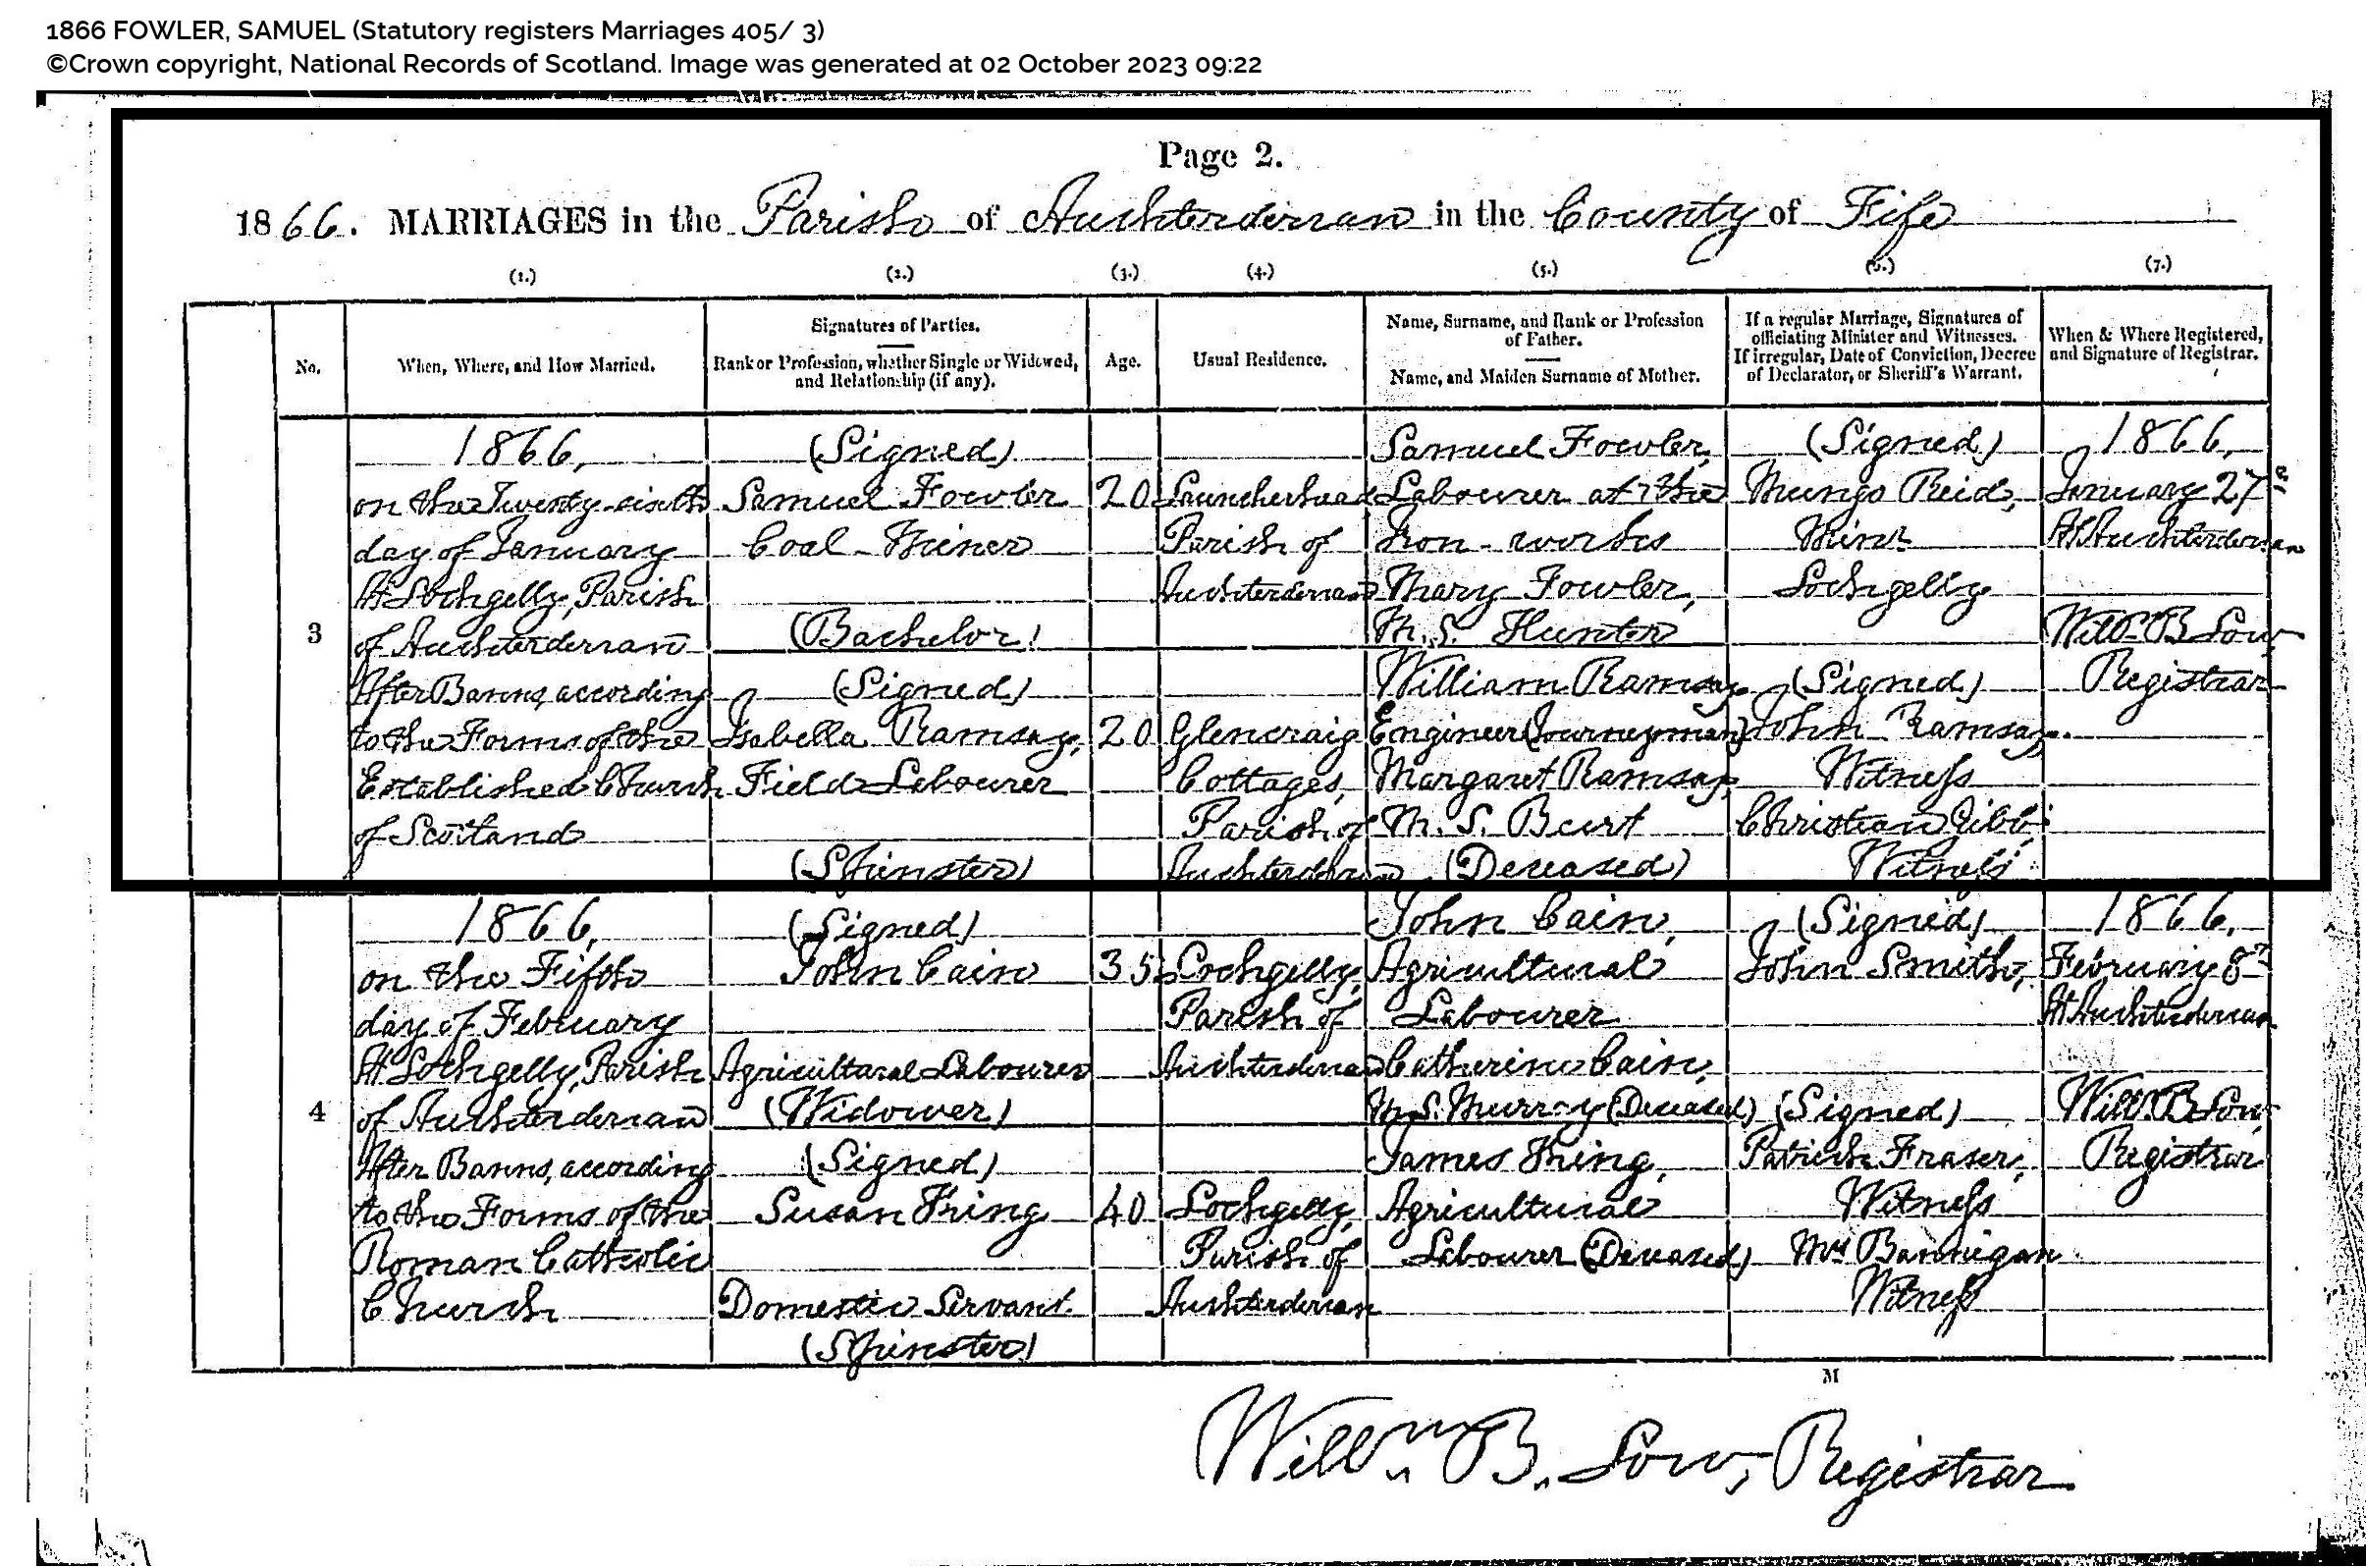 1866 FOWLER, SAMUEL (Statutory registers Marriages 405/ 3)
©Crown copyright, National Records of Scotland. Image was generated at 02 October 2023 09:22
Page 2.
1866. MARRIAGES in the Parish of Auchterderran in the County of Fife
(1.) (2.) (3.) (4.) (5.) (6.) (7.)
No.
When, Where, and How Married.
Signatures of Parties.
Rank or Profession, whether Single or Widowed,
and Relationship (if any).
Age.
Usual Residence.
Name, Surname, and Rank or Profession
of Father.
Name, and Maiden Surname of Mother.
If a regular Marriage, Signatures of
officiating Minister and Witnesses.
If irregular, Date of Conviction, Decree
of Declarator, or Sheriff's Warrant.
When & Where Registered,
and Signature of Registrar.
3
1866,
on the Twenty-sixth
day of January
At Lochgelly, Parish
of Auchterderran
After Banns, according
to the Forms of the
Established Church
of Scotland
(Signed)
Samuel Fowler
Coal Miner
(Bachelor)
(Signed)
Isabella Ramsay,
Field Labourer
(Spinster)
20
20
Launcherhead
Parish of
Auchterderran
Glencraig
Cottages,
Parish of
Auchterderran
Samuel Fowler,
Labourer at the
Iron-works
Mary Fowler,
M.S. Hunter
William Ramsay
Engineer (Journeyman)
Margaret Ramsay,
M.S. Burt
(Deceased)
(Signed)
Mungo Reid,
Minr
Lochgelly
(Signed)
John Ramsay.
Witness
Christian Gibb,
Witness
1866,
January 27th
At Auchterderran
Willm B Low,
Registrar
4
1866,
on the Fifth
day of February
At Lochgelly, Parish
of Auchterderran
After Banns, according
to the Forms of the
Roman Catholic
Church
(Signed)
John Cain
Agricultural Labourer
(Widower)
(Signed)
Susan King
Domestic Servant.
(Spinster)
35
40
Lochgelly,
Parish of
Auchterderran
Lochgelly,
Parish of
Auchterderran
John Cain,
Agricultural
Labourer
Catherine Cain,
M.S. Murray (Deceased)
James King,
Agricultural
Labourer (Deceased)
(Signed)
John Smith,
(Signed)
Patrick Fraser,
Witness
Mrs Bannigan
Witness
1866,
February 8th
At Auchterderran
Willm B Low,
Registrar
M
Willm B. Low, Registrar